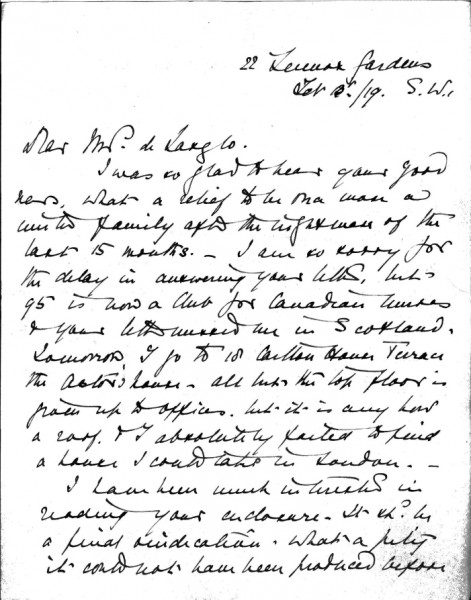 22 Lennox Gardens
Feb /19. S.W.1
Dear Mrs. de Laszlo.
I was so glad to hear your good
news, what a relief to be once more a
united family after the nightmare of the
last 15 months. — I am so sorry for
the delay in answering your letter, but
95 is now a Club for Canadian nurses
& your letter missed me in Scotland.
Tomorrow I go to 18 Carlton House Terrace
the Astor's house — all but the top floor is
given up to offices. but it is any how
a roof. & I absolutely failed to find
a house I could take in London. —
I have been much interested in
reading your enclosure. It shd. be
a final vindication. What a pity
it could not have been produced before